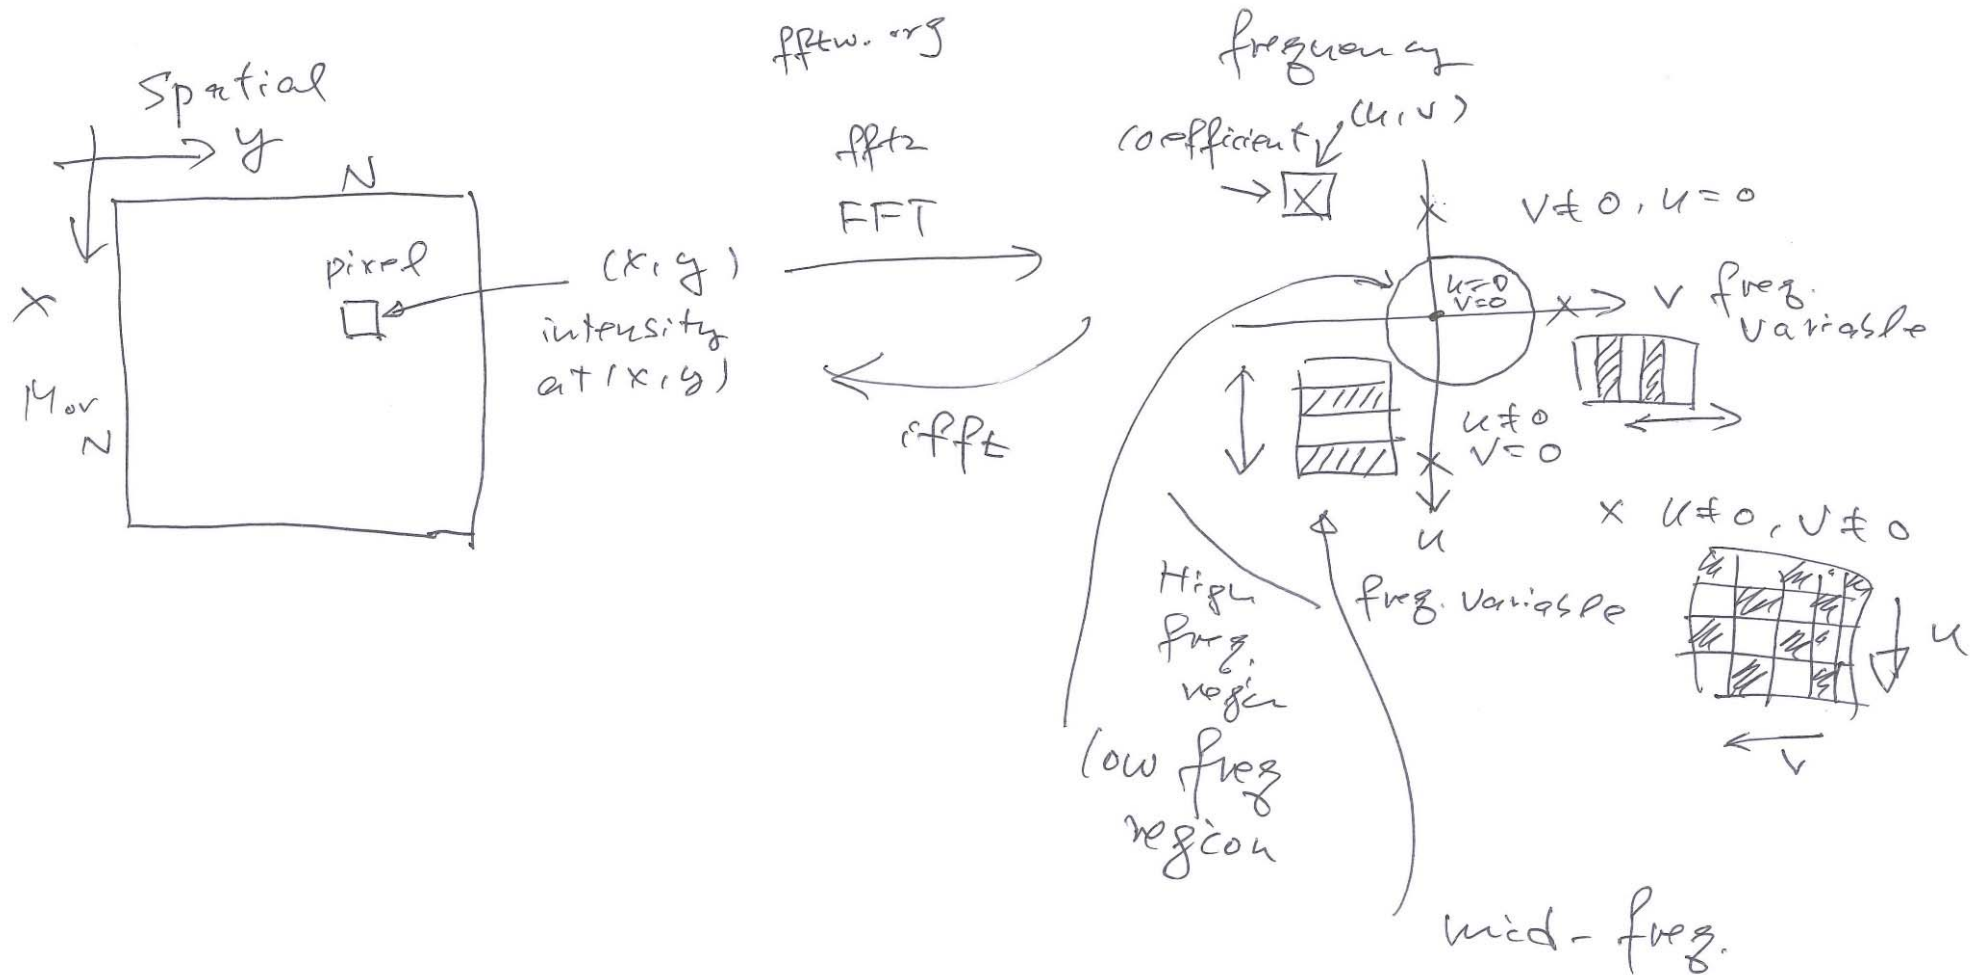 fftw.org
Spatial
y
N
X
M or
N
pixel
(x, y)
intensity
at (x, y)
fft2
FFT
ifft
frequency
coefficient
(u, v)
X
V≠0, u=0
u=0
v=0
V freq.
variable
u≠0
V=0
u
freq. variable
X u≠0, V≠0
u
V
High
freq.
regin
low freq
region
mid-freq.